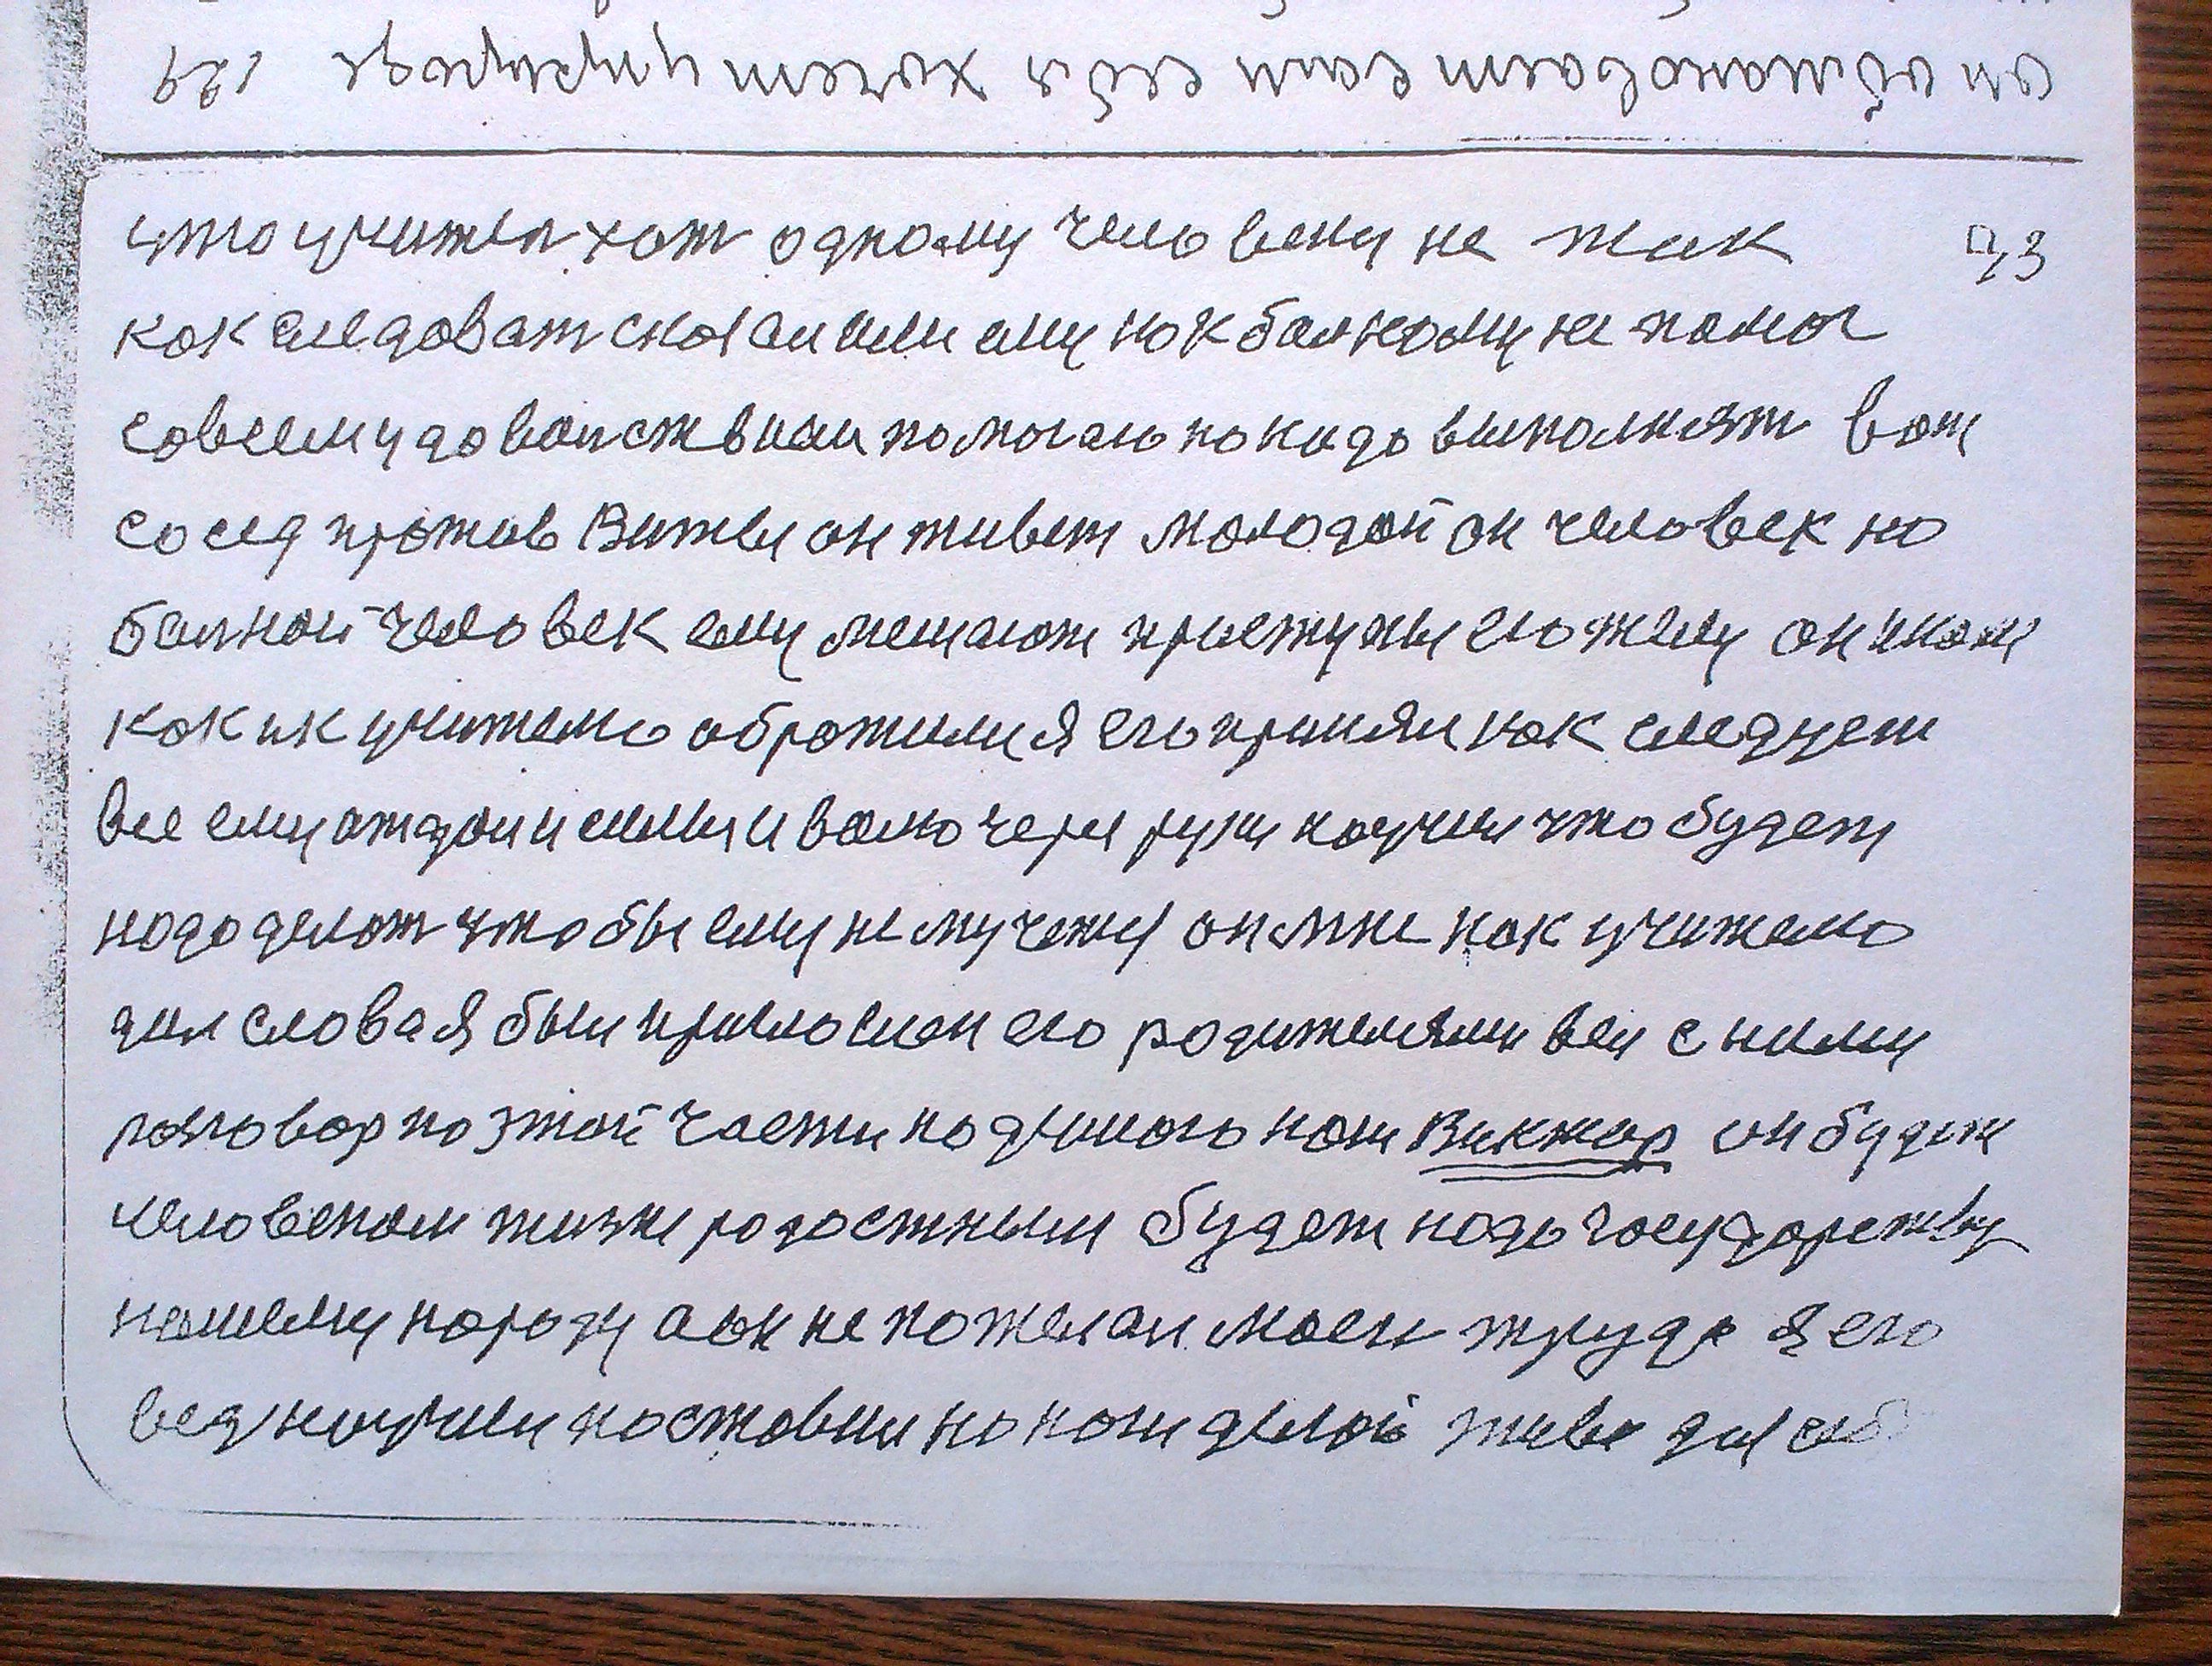 он обмановает сам себя хочет ццрцца 129
што учител хот одному человеку не так 73
как следоват сказал или ему как балному не помог
совсем удоволствием помогаю но надо выполнят вот
сосед против Витьи он живет молодой он человек но
балной человек ему мешают приступы его жему он
как и к учителю обротилися я его принял как следует
все ему отдал и силы и волю через руки научил што будет
надо делат штобы ему не мучежу он мне как учителю
дал слова я был приглошон его родителями вел с ними
разговор по этой части подумаю наш Виктор он будет
человеком жизни радостным будет надо государству
нашему народу а он не пожелал моего труда я его
вед научил поставил на ноги делай живи